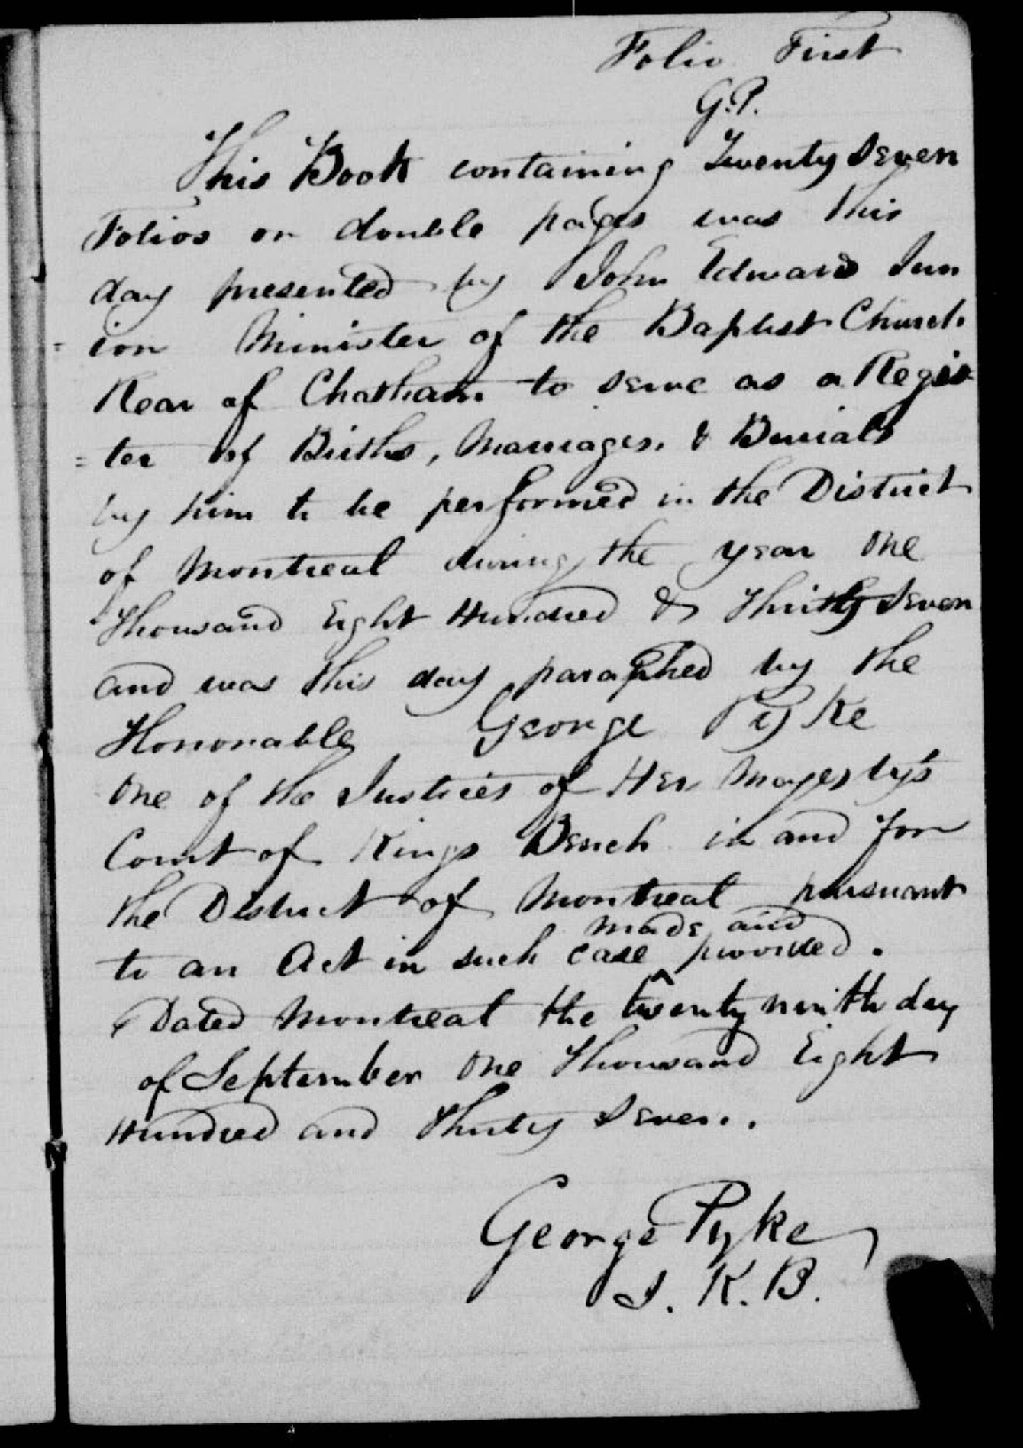 Folio First
G.P.
This Book containing Twenty Seven
Folios or double pages was this
day presented by John Edward Jun
= ion Minister of the Baptist Church
Rear of Chatham to serve as a Regis
= ter of Births, Marriages, & Burials
by him to be performed in the District
of Montreal during the year One
Thousand Eight Hundred & Thirty Seven
and was this day paraphed by the
Honorable George Pyke
One of the Justices of Her Majesty's
Court of Kings Bench in and for
the District of Montreal pursuant
made and
to an Act in such case provided.
Dated Montreal the twenty ninth day
of September One Thousand Eight
Hundred and Thirty Seven.
George Pyke
J. K. B.